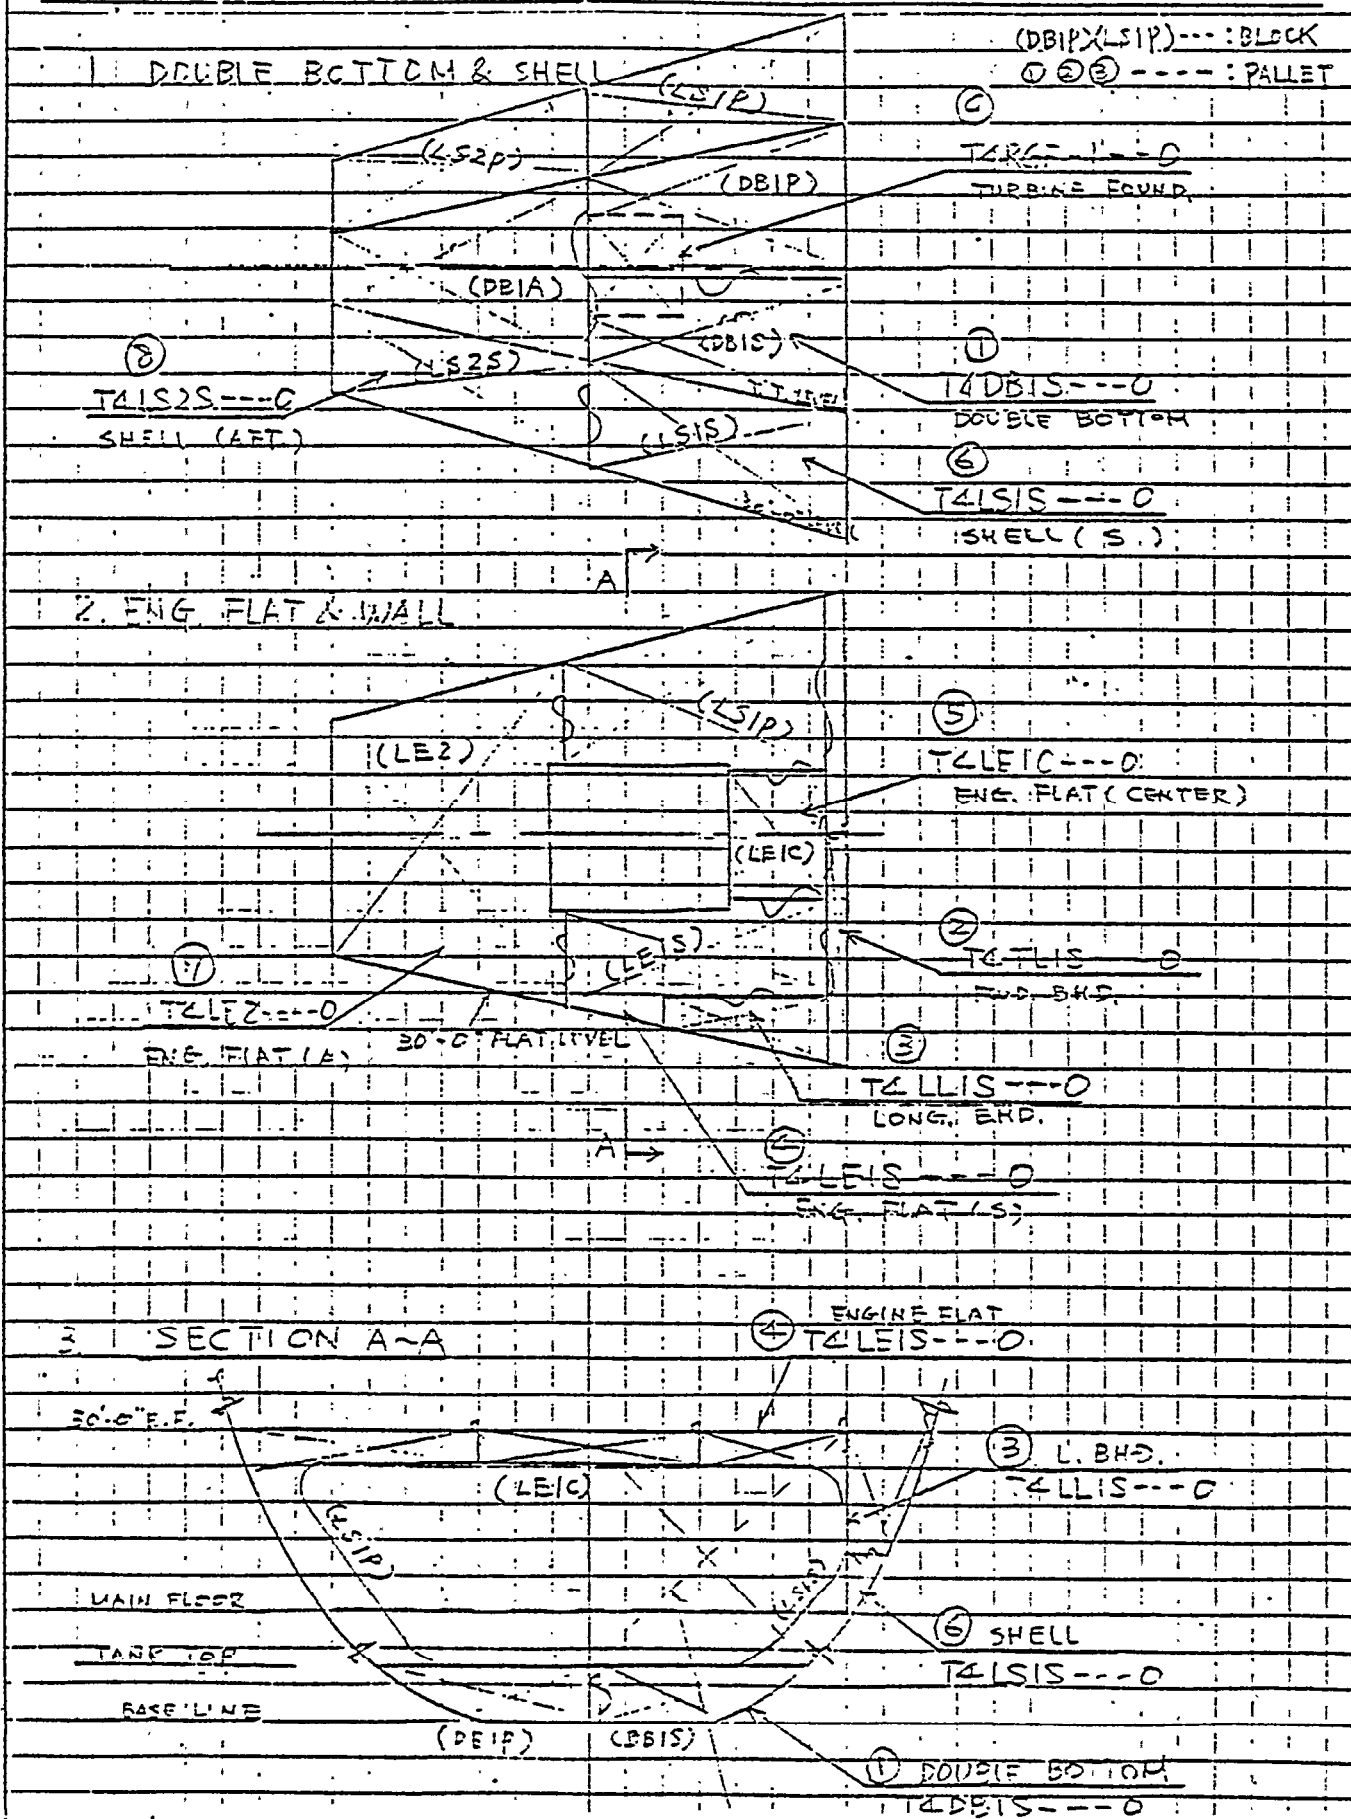 (DB1P)(LS1P)---:BLOCK
① ② ③ ----: PALLET
1 DOUBLE BOTTOM & SHELL
(LS1P)
(LS2P)
(DB1P)
TURBINE FOUND.
(DB1A)
(DB1S)
①
T4DB1S---0
DOUBLE BOTTOM
⑧
(LS2S)
T4LS2S---0
SHELL (AFT.)
(LS1S)
⑥
T4LS1S---0
SHELL (S.)
A
2. ENG. FLAT & WALL
(LS1P)
(LE2)
⑤
T4LE1C---0
ENG. FLAT (CENTER)
(LE1C)
②
T4TL1S---0
FWD. BHD.
(LE1S)
⑦
T4LE2---0
ENG. FLAT (A)
30'-0" FLAT LEVEL
③
T4LL1S---0
LONG. BHD.
A
④
T4LE1S----0
ENG. FLAT (S)
3 SECTION A~A
④ ENGINE FLAT
T4LE1S---0
30'-0" E.F.
(LE1C)
③ L. BHD.
T4LL1S---0
(LS1P)
(LS1S)
MAIN FLOOR
TANK TOP
BASE LINE
⑥ SHELL
T4LS1S---0
(DB1P)
(DB1S)
① DOUBLE BOTTOM
T4DB1S---0